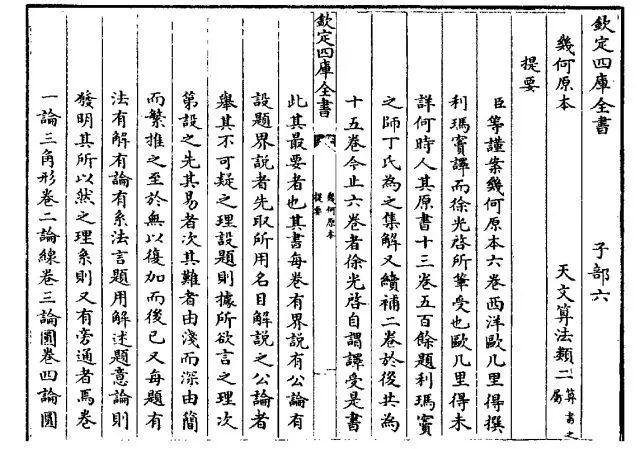 欽定四庫全書 子部六
幾何原本 天文算法類二 算書之屬
提要
臣等謹案幾何原本六卷西洋歐几里得撰
利瑪竇譯而徐光啓所筆受也歐几里得未
詳何時人其原書十三卷五百餘題利瑪竇
之師丁氏為之集解又續補二卷於後共為
十五卷今止六卷者徐光啓自謂譯受是書
欽定四庫全書
幾何原本
提要
此其最要者也其書每卷有界說有公論有
設題界說者先取所用名目解說之公論者
舉其不可疑之理設題則據所欲言之理次
第設之先其易者次其難者由淺而深由簡
而繁推之至於無以復加而後已又每題有
法有解有論有系法言題用解述題意論則
發明其所以然之理系則又有旁通者焉卷
一論三角形卷二論線卷三論圓卷四論圓